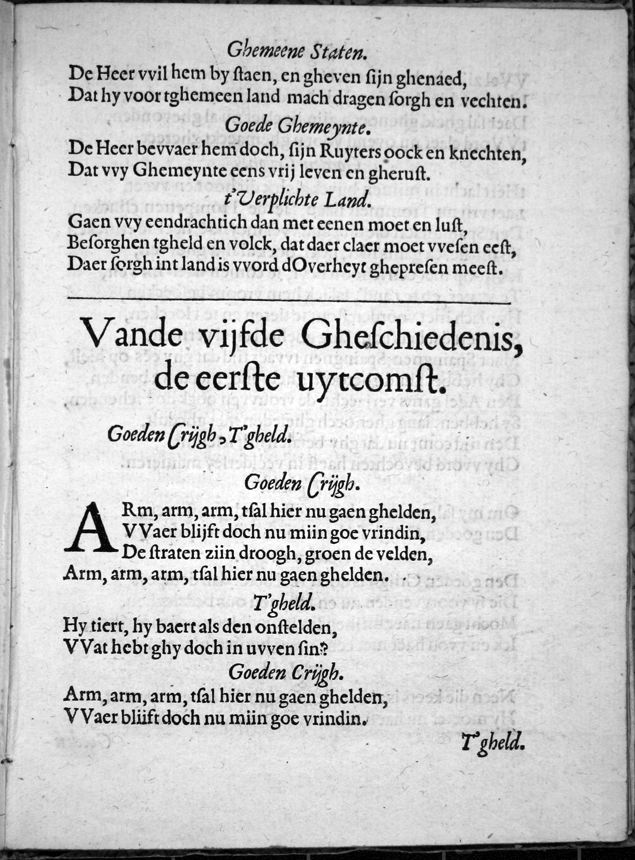 Ghemeene Staten.
De Heer vvil hem by ſtaen, en gheven ſijn ghenaed,
Dat hy voor tghemeen land mach dragen ſorgh en vechten.
Goede Ghemeynte.
De Heer bevvaer hem doch, ſijn Ruyters oock en knechten,
Dat vvy Ghemeynte eens vrij leven en gheruſt.
t'Verplichte Land.
Gaen vvy eendrachtich dan met eenen moet en luſt,
Beſorghen tgheld en volck, dat daer claer moet vveſen eeſt,
Daer ſorgh int land is vvord dOverheyt ghepreſen meeſt.
Vande vijfde Gheſchiedenis,
de eerſte uytcomſt.
Goeden Crijgh, T'gheld.
Goeden Crijgh.
ARm, arm, arm, tſal hier nu gaen ghelden,
VVaer blijft doch nu miin goe vrindin,
De ſtraten ziin droogh, groen de velden,
Arm, arm, arm, tſal hier nu gaen ghelden.
T'gheld.
Hy tiert, hy baert als den onſtelden,
VVat hebt ghy doch in uvven ſin?
Goeden Crijgh.
Arm, arm, arm, tſal hier nu gaen ghelden,
VVaer bliift doch nu miin goe vrindin.
T'gheld.